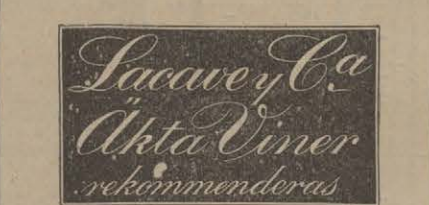 Lacave y Cª
Äkta Viner
rekommenderas